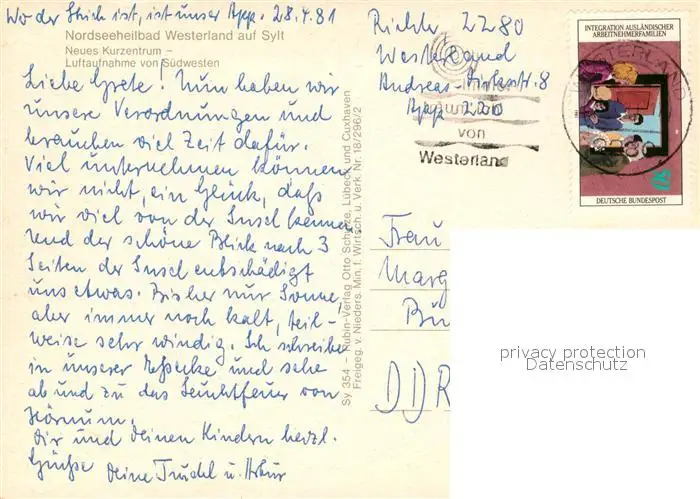 Wo der Strich ist, ist unser App. 28.4.81
Nordseeheilbad Westerland auf Sylt
Neues Kurzentrum –
Luftaufnahme von Südwesten
Liebe Grete! Nun haben wir
unsere Verordnungen und
brauchen viel Zeit dafür.
Viel unternehmen können
wir nicht, ein Glück, daß
wir viel von der Insel kennen
und der schöne Blick nach 3
Seiten der Insel entschädigt
uns etwas. Bisher nur Sonne,
aber immer noch kalt, teil-
weise sehr windig. Ich schreibe
in unserer Eßecke und sehe
ab und zu das Leuchtfeuer von
Hörnum.
Dir und Deinen Kindern herzl.
Grüße Deine Trudel u. Artur
Sy 354 – Rubin-Verlag Otto Schütze, Lübeck und Cuxhaven
Freigeg. v. Nieders. Min. f. Wirtsch. u. Verk. Nr. 18/296/2
Richter 2280
Westerland
Andreas-Dirksstr. 8
App 220
von
Westerland
INTEGRATION AUSLÄNDISCHER
ARBEITNEHMERFAMILIEN
50
DEUTSCHE BUNDESPOST
WESTERLAND
Frau
Marg
DDR
privacy protection
Datenschutz